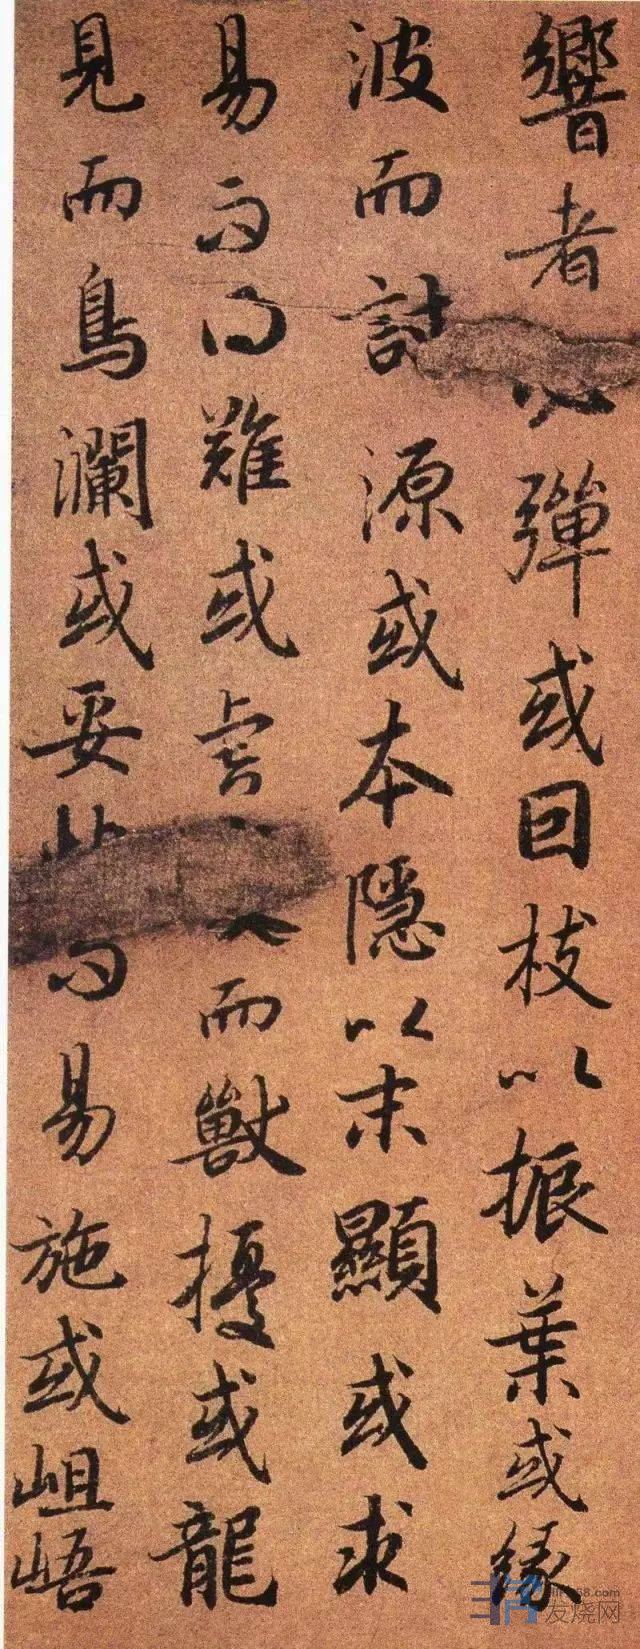 響者必彈或因枝以振葉或緣
波而討源或本隱以末顯或求
易而得難或虎變而獸擾或龍
見而鳥瀾或妥帖而易施或岨峿
发烧网